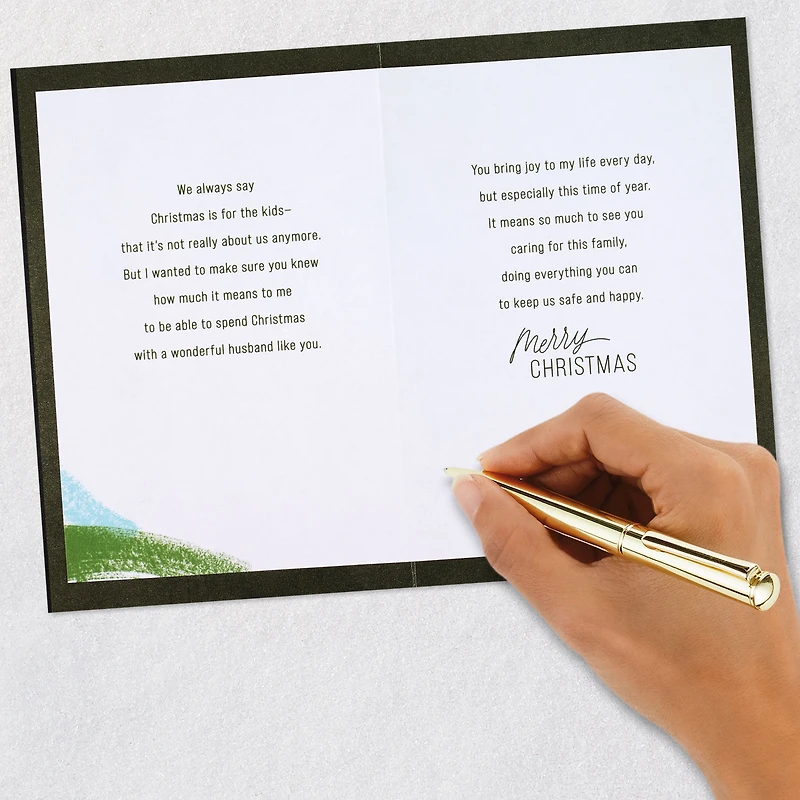 We always say
Christmas is for the kids–
that it's not really about us anymore.
But I wanted to make sure you knew
how much it means to me
to be able to spend Christmas
with a wonderful husband like you.
You bring joy to my life every day,
but especially this time of year.
It means so much to see you
caring for this family,
doing everything you can
to keep us safe and happy.
Merry
CHRISTMAS